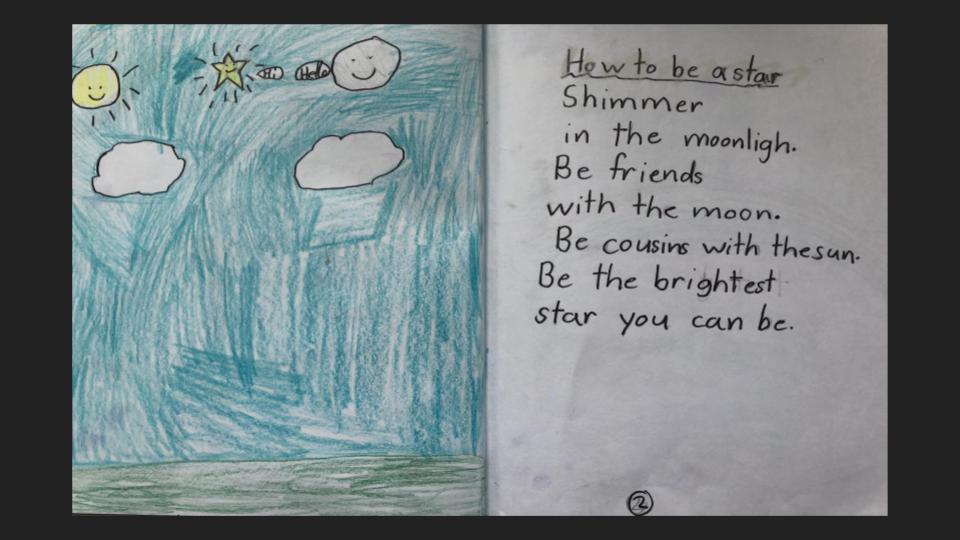 Hi Hello
How to be a star
Shimmer
in the moonligh.
Be friends
with the moon.
Be cousins with the sun.
Be the brightest
star you can be.
2